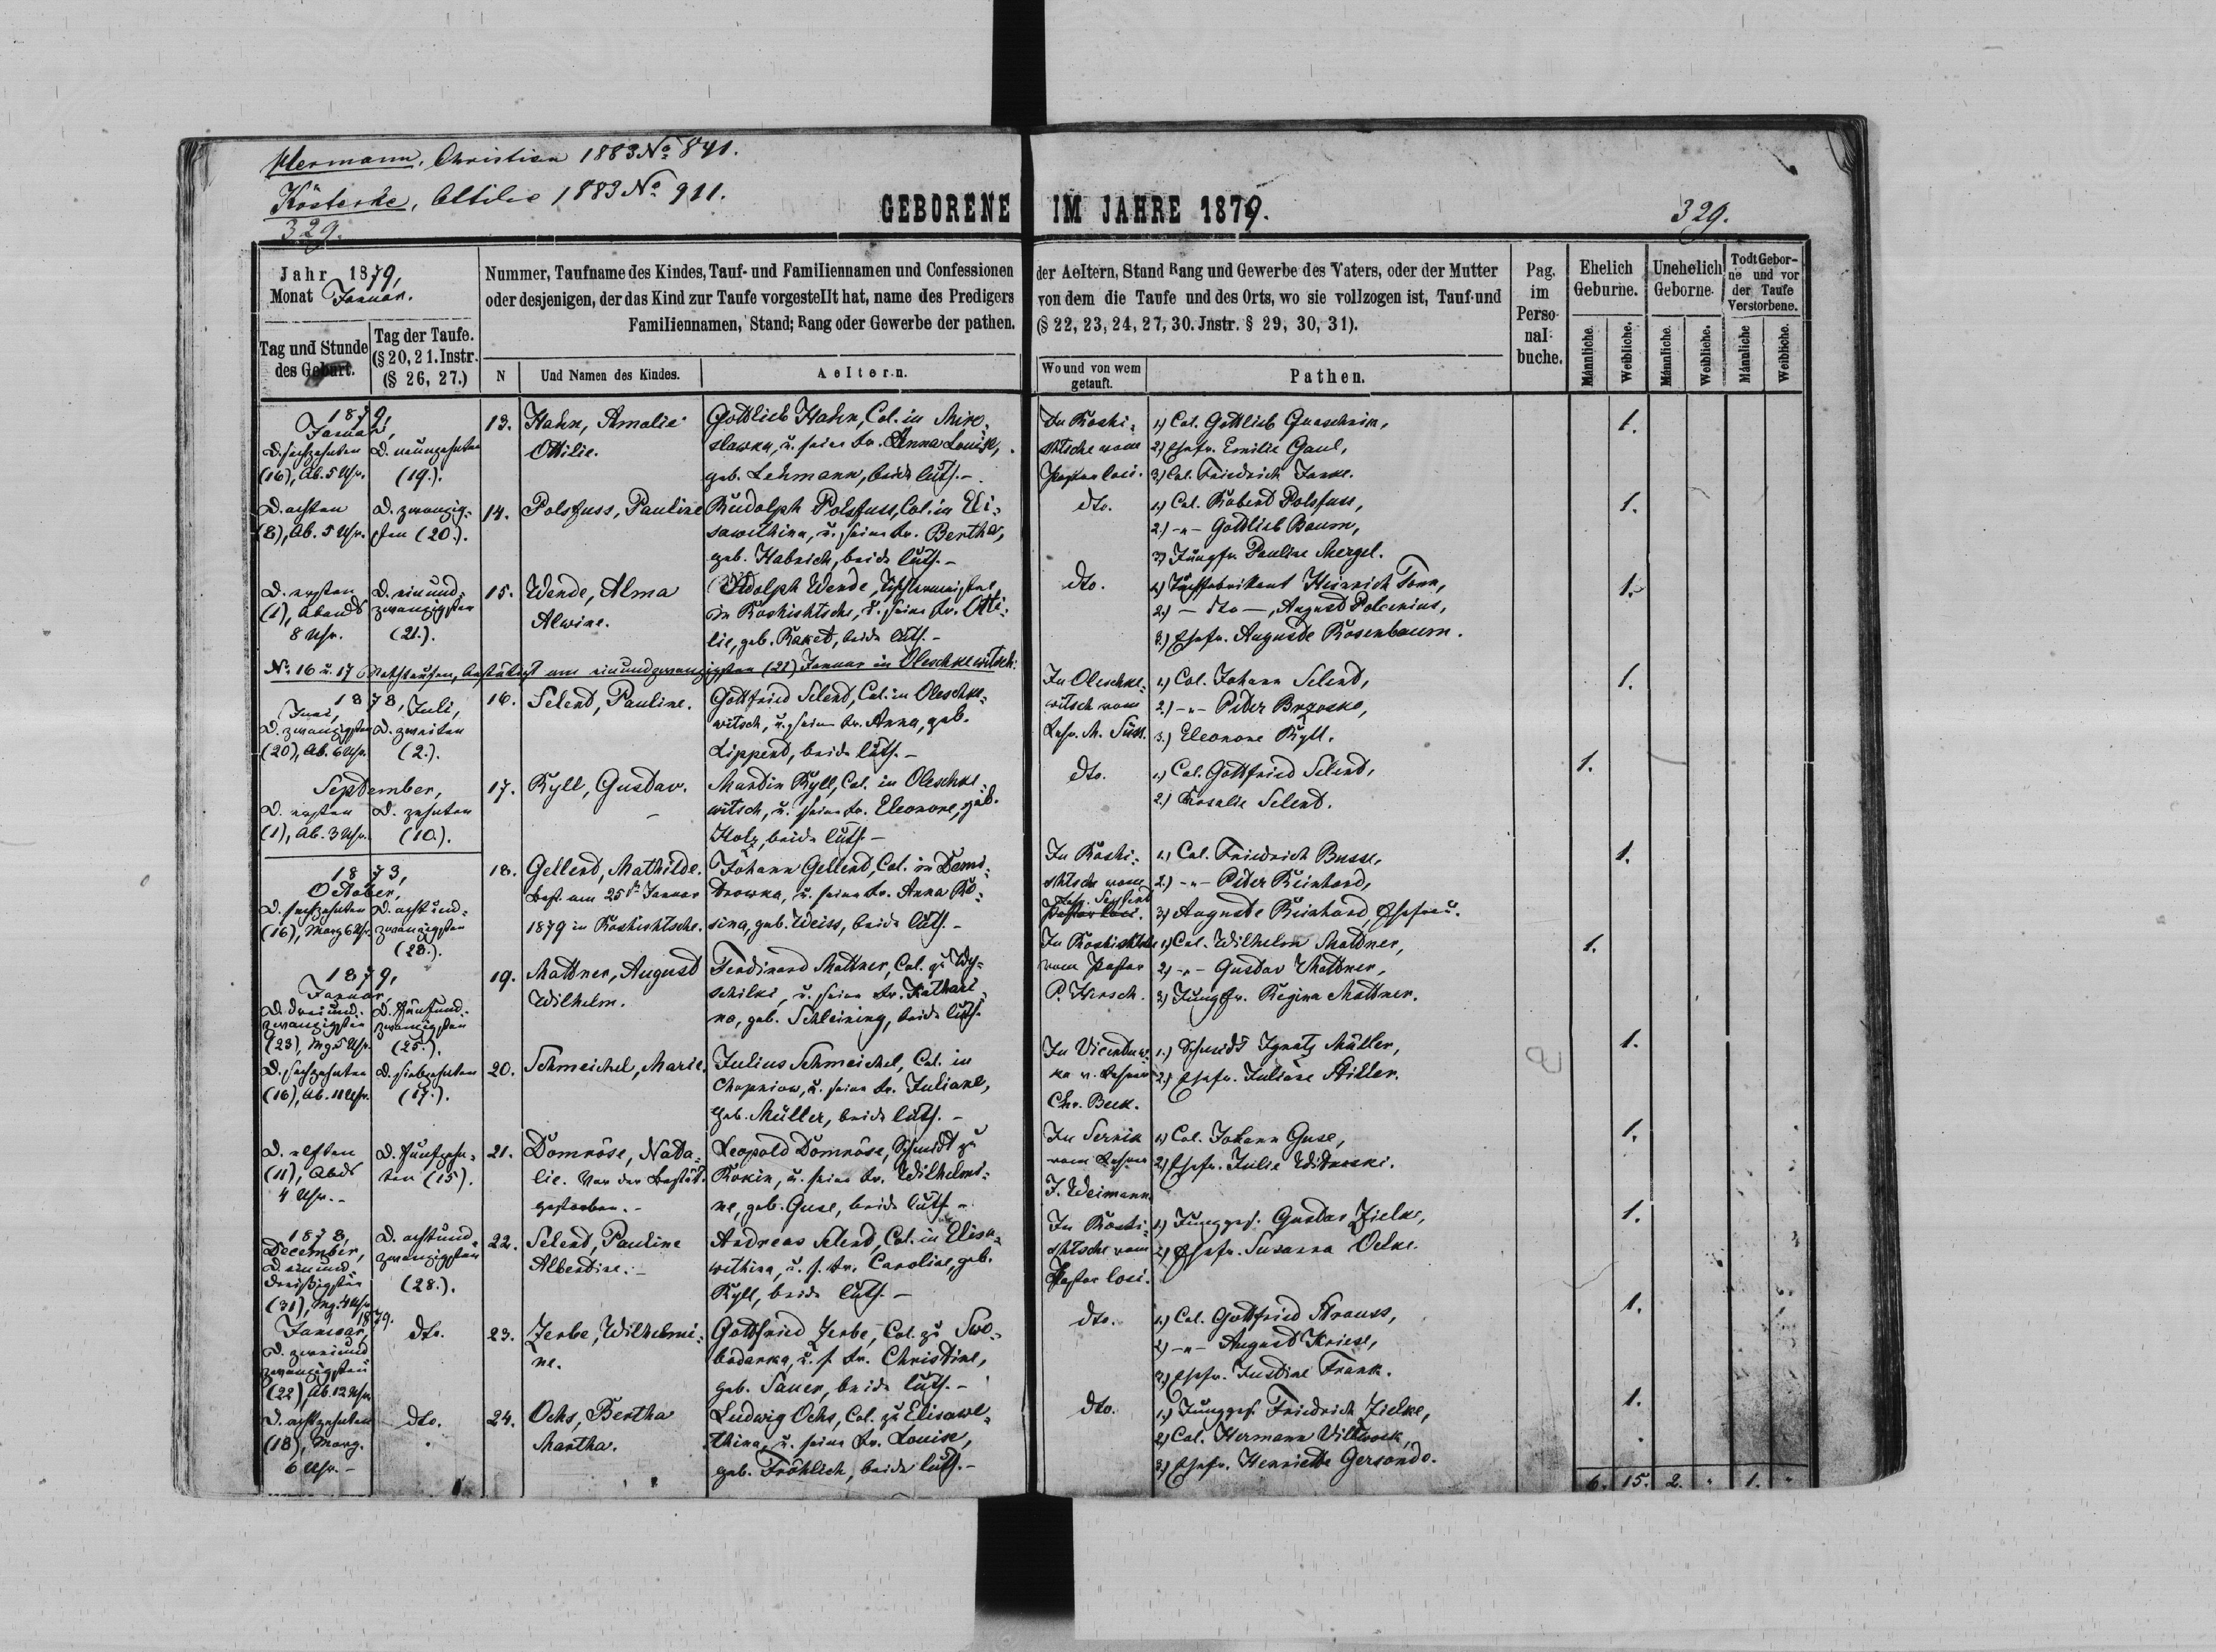 Hermann, Christian 1883 No 841.
Kösterke, Ottilie 1883 No 911.
329.
GEBORENE IM JAHRE 1879.
329.
Jahr 1879,
Monat Januar.
Tag und Stunde
des Geburt.
Tag der Taufe.
(§ 20, 21. Instr.
(§ 26, 27.)
Nummer, Taufname des Kindes, Tauf- und Familiennamen und Confessionen
oder desjenigen, der das Kind zur Taufe vorgestellt hat, name des Predigers
Familiennamen, Stand; Rang oder Gewerbe der pathen.
N
Und Namen des Kindes.
Aeltern.
der Aeltern, Stand Rang und Gewerbe des Vaters, oder der Mutter
von dem die Taufe und des Orts, wo sie vollzogen ist, Tauf-und
(§ 22, 23, 24, 27, 30. Jnstr. § 29, 30, 31).
Wo und von wem
getauft.
Pathen.
Pag.
im
Perso-
nal-
buche.
Ehelich
Geburne.
Unehelich
Geborne.
Todt Gebor-
ne und vor
der Taufe
Verstorbene.
Männliche.
Weibliche.
Männliche.
Weibliche.
Männliche
Weibliche.
1879,
Januar,
D. sechzehnten
(16), Ab. 5 Uhr.
D. neunzehnten
(19.).
13.
Hahn, Amalie
Ottilie.
Gottlieb Hahn, Col. in Miro-
slawka, u. seine Fr. Anna Louise,
geb. Lehmann, beide luth. -
In Roshi-
schtsche vom
Pastor loci.
1.) Col. Gottlieb Quaschnim,
2.) Ehefr. Emilie Gaul,
3.) Col. Friedrich Janke.
1.
D. achten
(8), Ab. 5 Uhr.
D. zwanzig-
sten (20.).
14.
Polsfuss, Pauline
Rudolph Polsfuss, Col. in Eli-
sawethina, u. seine Fr. Bertha,
geb. Habrich, beide luth. -
dto.
1.) Col. Robert Polsfuss,
2.) -"- Gottlieb Baum,
3.) Jungfr. Pauline Mergel.
1.
D. ersten
(1), Abends
8 Uhr.
D. einund-
zwanzigsten
(21.).
15.
Wende, Alma
Alwine.
Adolph Wende, Tischlermeister
in Roshischtsche, u. seine Fr. Otti-
lie, geb. Raket, beide luth. -
dto.
1.) Tuchfabrikant Heinrich Tonn,
2.) - dto -, August Polcenius,
3.) Ehefr. Auguste Rosenbaum.
1.
No 16 u. 17 Nothtaufen, bestätigt am einundzwanzigsten (21) Januar in Oleschkewitsch.
1878,
Juni,
D. zwanzigsten
(20), Ab. 6 Uhr.
Juli,
D. zweiten
(2.).
16.
Selend, Pauline.
Gottfried Selend, Col. in Oleschke-
witsch, u. seine Fr. Anna, geb.
Lippert, beide luth. -
In Oleschke-
witsch vom
Lehr. M. Süss.
1.) Col. Johann Selend,
2.) -"- Peter Brzoske,
3.) Eleonore Ryll.
1.
September,
D. ersten
(1), Ab. 3 Uhr.
D. zehnten
(10.).
17.
Ryll, Gustav.
Martin Ryll, Col. in Oleschke-
witsch, u. seine Fr. Eleonore, geb.
Holz, beide luth. -
dto.
1.) Col. Gottfried Selend,
2.) Rosalie Selend.
1.
1873,
October,
D. sechzehnten
(16), Morg 6 Uhr.
D. achtund-
zwanzigsten
(28.).
18.
Gellend, Mathilde.
Best. am 25sten Januar
1879 in Roshischtsche.
Johann Gellend, Col. in Domi-
trowka, u. seine Fr. Anna Ro-
sina, geb. Weiss, beide luth. -
In Roshi-
schtsche vom
Pastor loci.
1.) Col. Friedrich Busse,
2.) -"- Peter Reinhard,
3.) Auguste Reinhard, Ehefrau.
1.
1879,
Januar,
D. dreiund-
zwanzigsten
(23), Mg. 5 Uhr.
D. fünfund-
zwanzigsten
(25.).
19.
Mattner, August
Wilhelm.
Ferdinand Mattner, Col. zu Wy-
schilki, u. seine Fr. Kathari-
na, geb. Schleining, beide luth.
In Roshischtsche
vom Pastor
P. Hersch.
1.) Col. Wilhelm Mattner,
2.) -"- Gustav Mattner,
3.) Jungfr. Regina Mattner.
1.
D. sechzehnten
(16), Ab. 11 Uhr.
D. siebzehnten
(17.).
20.
Schmeichel, Marie.
Julius Schmeichel, Col. in
Chopniow, u. seine Fr. Juliane,
geb. Müller, beide luth. -
Chr. Beck.
1.) Schmidt Ignatz Müller,
2.) Ehefr. Juliane Stiller.
1.
D. elften
(11), Abds
4 Uhr. -
D. fünfzehn-
ten (15).
21.
Domröse, Nata-
lie. Vor der Bestät.
gestorben. -
Leopold Domröse, Schmidt zu
Rokin, u. seine Fr. Wilhelmi-
ne, geb. Guse, beide luth. -
In Sernik
vom Lehrer
J. Weimann.
1.) Col. Johann Guse,
2.) Ehefr. Julie Witkowski.
1.
1878,
December,
D. einund-
dreißigsten
(31), Mg. 4 Uhr.
D. achtund-
zwanzigsten
(28.).
22.
Selend, Pauline
Albertine. -
Andreas Selend, Col. in Elisa-
wethina, u. s. Fr. Caroline, geb.
Ryll, beide luth. -
In Roshi-
schtsche vom
Pastor loci.
1.) Junggef. Gustav Zielke,
2.) Ehefr. Susanna Oelke.
1.
1879.
Januar,
D. zweiund
zwanzigsten
(22), Ab. 12 Uhr
dto.
23.
Zerbe, Wilhelmi-
ne.
Gottfried Zerbe, Col. zu Swo-
bodarka, u. s. Fr. Christine,
geb. Sauer, beide luth. -
dto.
1.) Col. Gottfried Strauss,
2.) -"- August Kriese,
3.) Ehefr. Justine Frank.
1.
D. achtzehnten
(18), Morg.
6 Uhr. -
dto.
24.
Ochs, Bertha
Martha.
Ludwig Ochs, Col. zu Elisawe-
thina, u. seine Fr. Louise,
geb. Fröhlich, beide luth. -
dto.
1.) Junggef. Friedrich Zielke,
2.) Col. Hermann Villwock,
3.) Ehefr. Henriette Gersonde.
1.
6. 15. 2. " 1. "